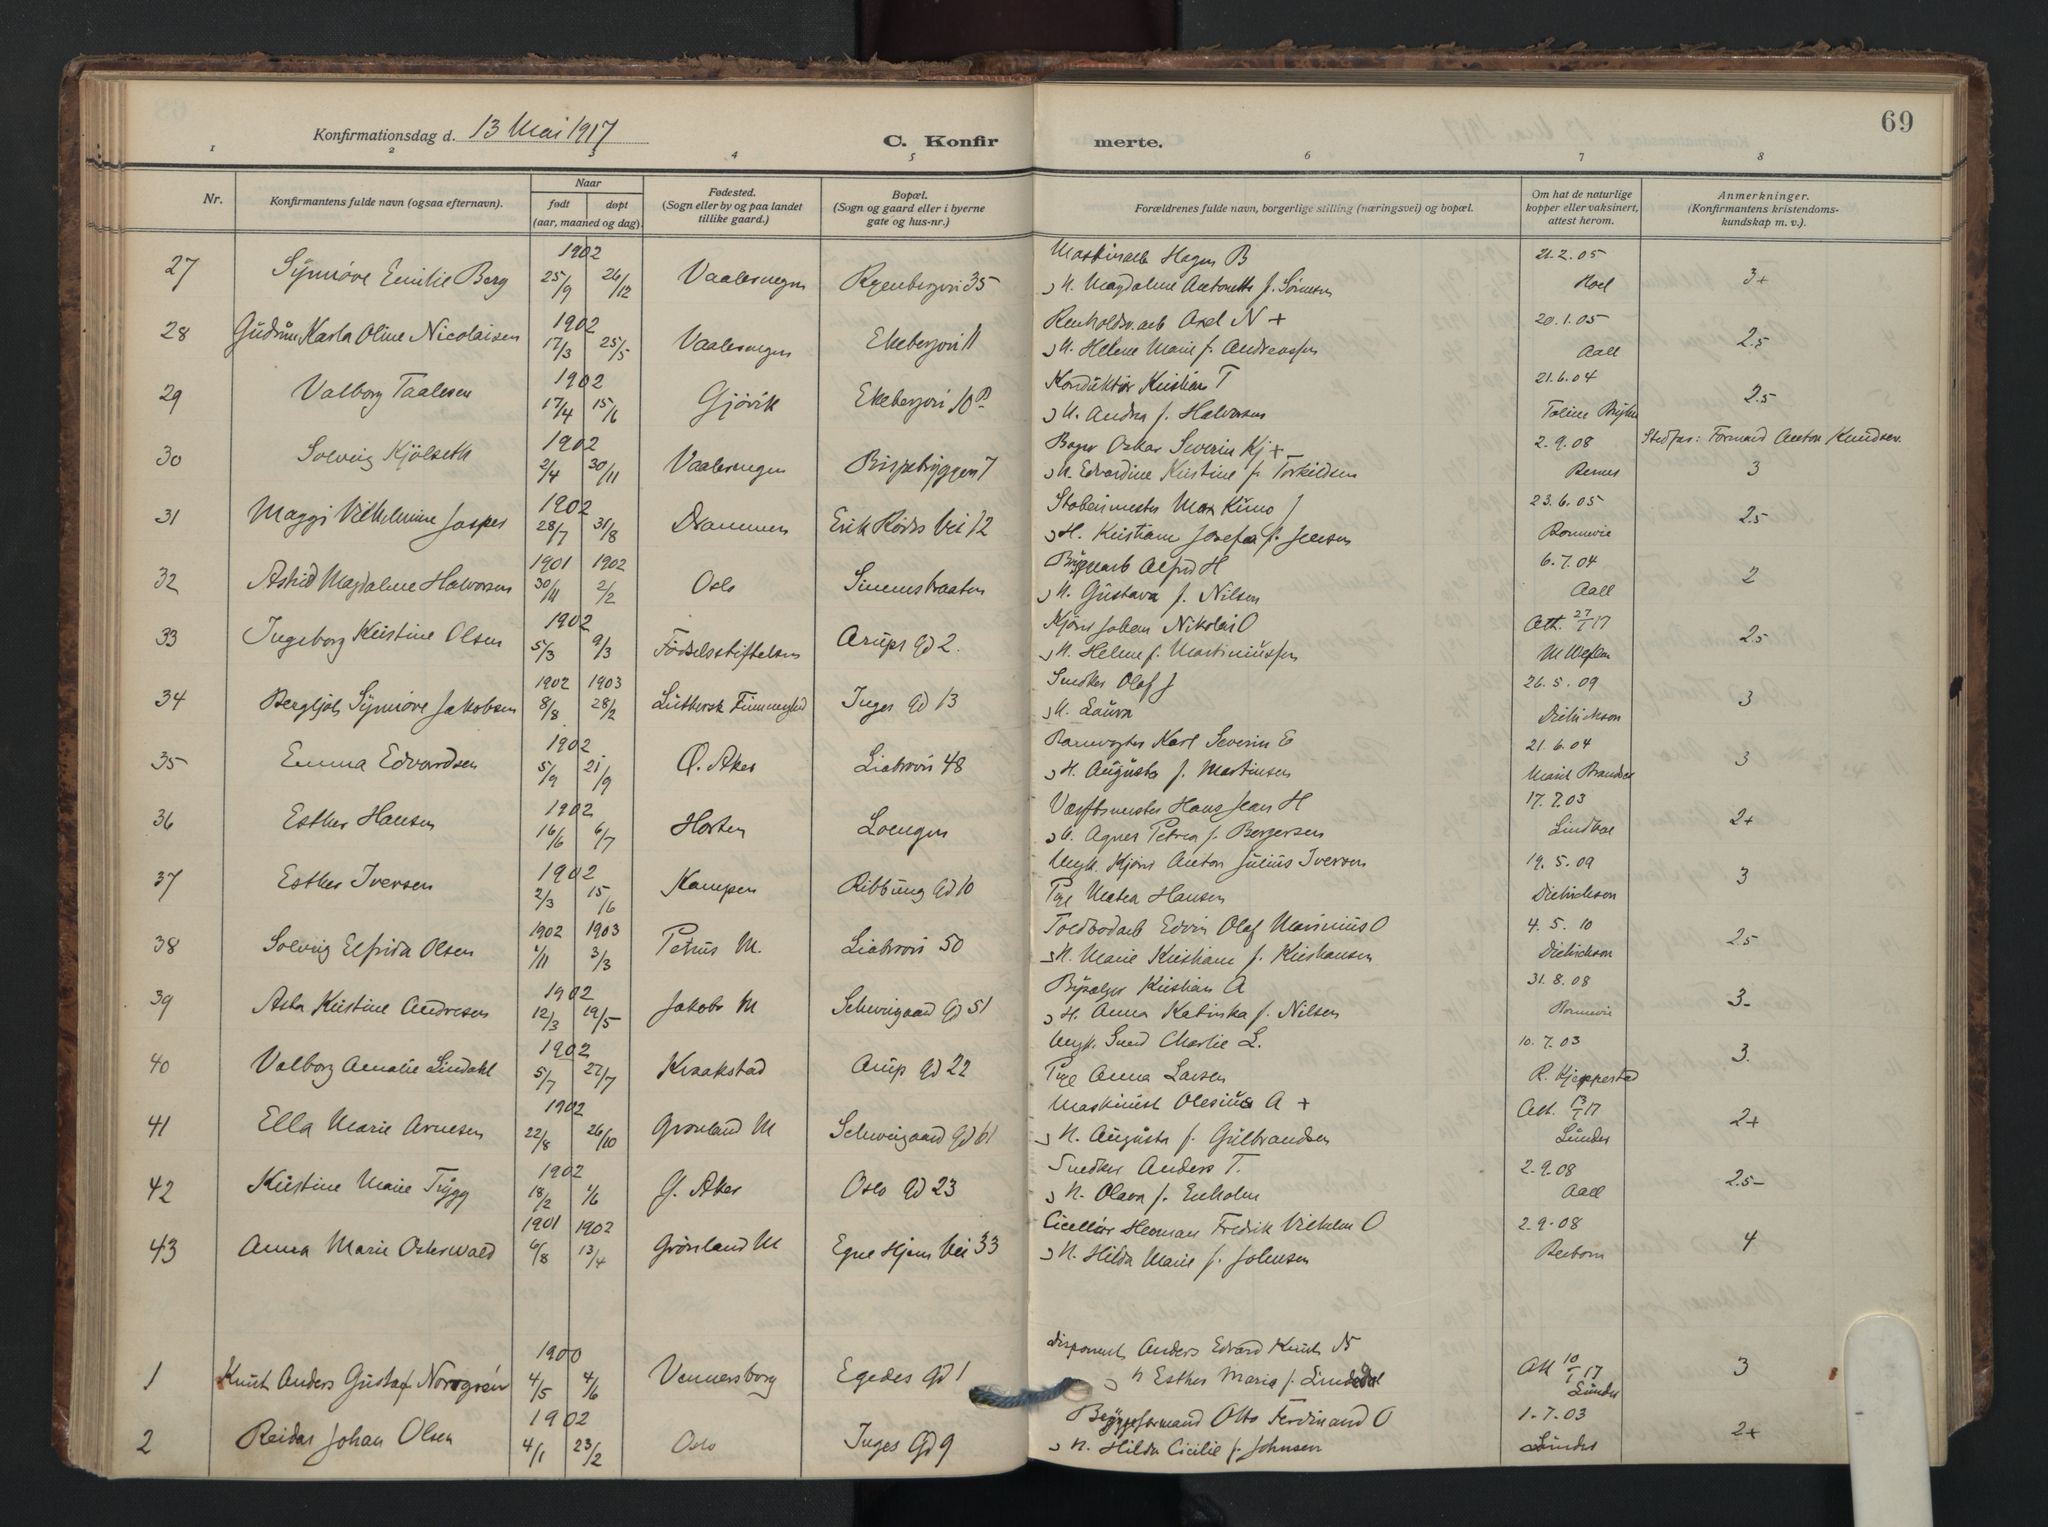 69
Konfirmationsdag d. 13 Mai 1917
C. Konfir merte.
1 2 3 4 5 6 7 8
Nr.
Konfirmantens fulde navn (ogsaa efternavn).
Naar
født døpt
(aar, maaned og dag).
Fødested.
(Sogn eller by og paa landet
tillike gaard.)
Bopæl.
(Sogn og gaard eller i byerne
gate og hus-nr.)
Forældrenes fulde navn, borgerlige stilling (næringsvei) og bopæl.
Om hat de naturlige
kopper eller vaksinert,
attest herom.
Anmerkninger.
(Konfirmantens kristendoms-
kundskap m. v.).
1902 Maskinarb Hagen B 21.2.05
27 Synnøve Emilie Berg 25/9 26/12 Vaalerengen 35 H. Magdalene Antonette f. Sørensen 3+
1902 Renholdsarb Axel N + 20.1.05
28 Gudrun Karla Oline Nicolaisen 17/3 25/5 Vaalerengen Ekebergvei 11 H. Helene Marie f. Andreassen Aall 2.5
1902 Konduktør Kristian T 21.6.04
29 Valborg Taalesen 17/4 15/6 Gjøvik Ekebergvei 10 H. Andrea f. Halvorsen 2.5
1902 Bager Oskar Severin Kj + 2.9.08 Stedfar: Tormand Anton Knudsen.
30 Solveig Kjølseth 2/4 30/11 Vaalerengen Bispebryggen 7 H. Edvardine Kristine f. Torkildsen 3
1902 Max Kuno J 23.6.05
31 Maggi Vilhelmine Jasper 28/7 31/8 Drammen Vei 12 H. Kristiane Josefa f. Jensen 2.5
1901 1902 Alfred H 6.7.04
32 Astrid Magdalene Halvorsen 30/11 2/2 Oslo Simensbraaten H. Gustava f. Nilsen Aall 2
1902 Kjører Johan Nikolai O Att. 27/1 17
33 Ingeborg Kristine Olsen 5/3 9/3 Fødselsstiftelsen Arups Gd 2. H. Helene f. Martiniussen 2.5
1902 1903 Snedker Olaf J 26.5.09
34 Bergljot Synnøve Jakobsen 8/8 28/2 Luthersk Inges Gd 13 H. Laura Dietrichson 3
1902 Banevogter Karl Severin E 21.6.04
35 Emma Edvardsen 5/9 21/9 Ø. Aker Liabrovei 48 H. Augusta f. Martinsen 3
1902 Værftsmester Hans Jean H 17.7.03
36 Esther Hansen 16/6 6/7 Horten Loengen H. Agnes Petrea f. Bergersen 2+
1902 Ungk. Kjører Anton Julius Iversen 19.5.09
37 Esther Iversen 2/3 15/6 Kampen Ribbung Gd 10 Pige Matea Hansen Dietrichson 3
1902 1903 Toldbodarb Edvin Olaf Marinius O 4.5.10
38 Solveig Elfrida Olsen 1/11 3/3 Petrus M. Liabrovei 50 H. Marie Kristiane f. Kristiansen Dietrichson 2.5
1902 Kristian A 31.8.08
39 Asta Kristine Andresen 12/3 19/5 Jakobs M Schweigaard Gd 51 H. Anna Katinka f. Nilsen 3-
1902 Ungk. Charlie L. 10.7.03
40 Valborg Amalie Lindahl 5/7 27/7 Kraakstad Arup Gd 22 Pige Anna Larsen 3.
1902 Maskinist Olesius A + Att. 13/1 17
41 Ella Marie Arnesen 22/8 26/10 Grønland M Schweigaard Gd 61 H. Augusta f. Gulbrandsen Lunder 2+
1902 Snedker Anders T. 2.9.08
42 Kristine Marie Trygg 18/2 1/6 G. Aker Oslo Gd 23 H. Olava f. Enholm Aall 2.5-
1901 1902 Ciselør Herman Fredrik Vilhelm O 2.9.08
43 Anna Marie Osterwald 6/8 13/4 Grønland M Egne Hjem Vei 33 H. Hilda Marie f. Johnsen 4
1900 disponent Anders Edvard Knut N
1 Knut Anders Gustaf Norrgrén 4/5 4/6 Vennersborg Egedes Gd 1 H Esther Maria f. Lindedal Att 10/1 17 Lunder 3
1902 Byggeformand Otto Ferdinand O 1.7.03
2 Reidar Johan Olsen 4/1 23/2 Oslo Inges Gd 9 H. Hilda Cicilie f. Johnsen Lunder 2+